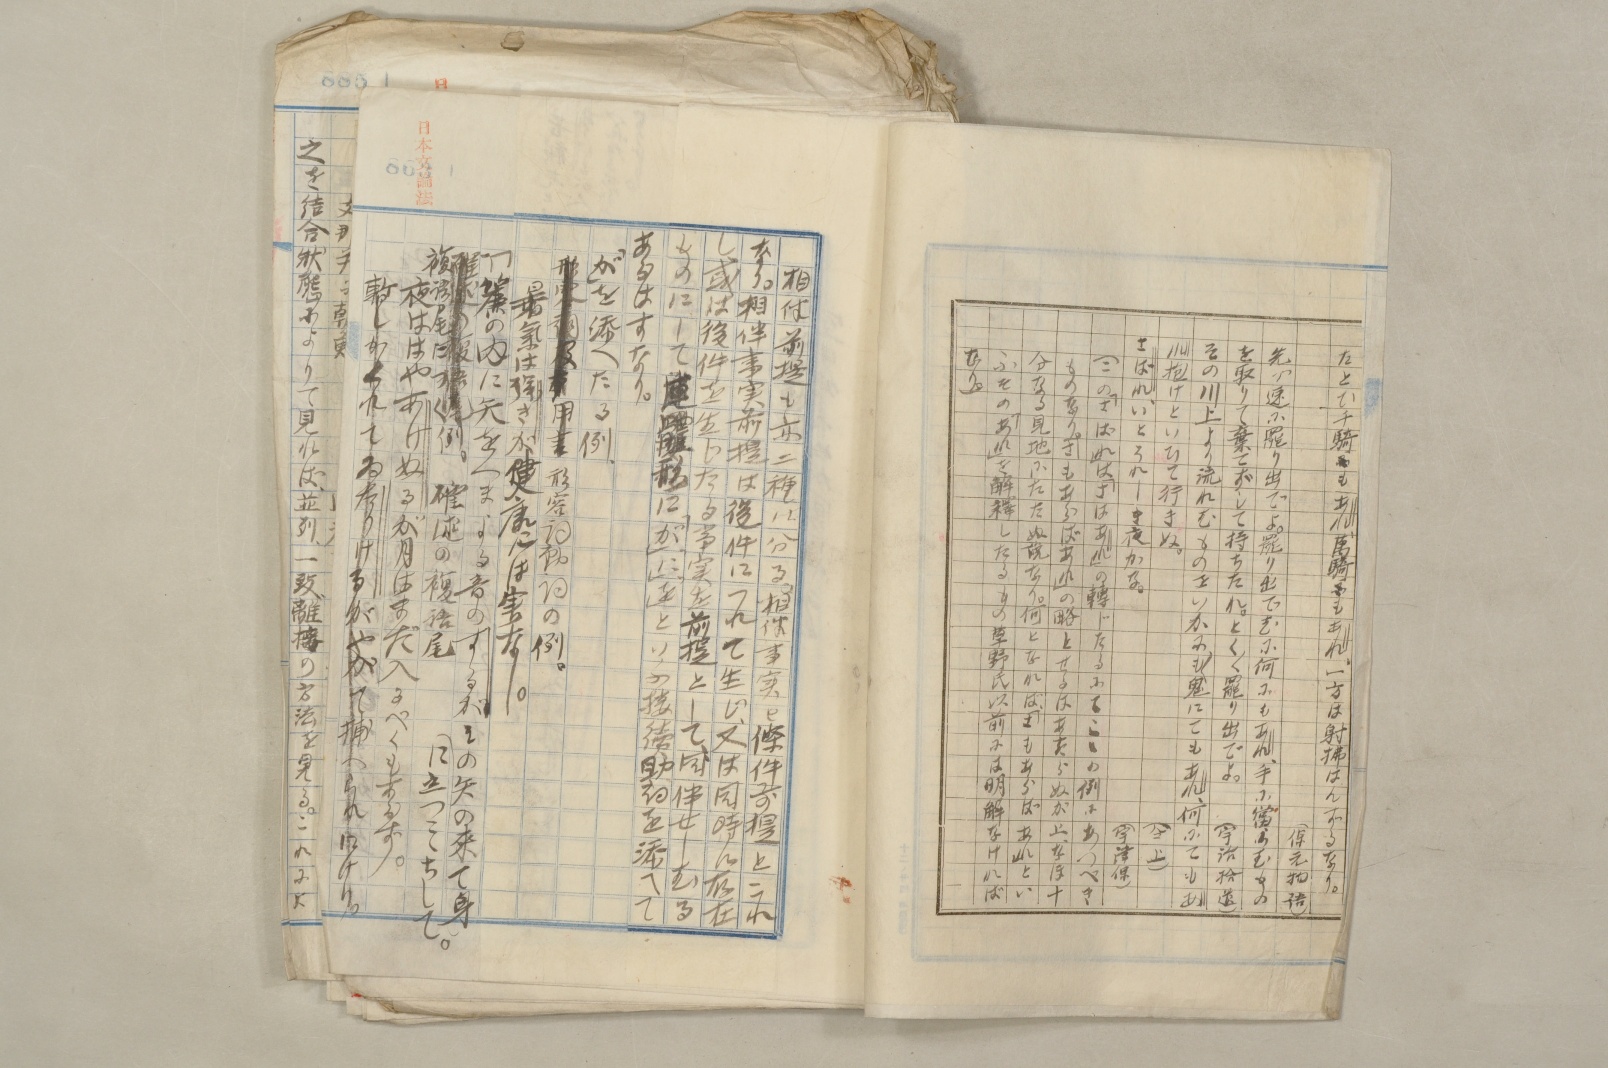 たとひ千騎もあれ、万騎もあれ、一方は射拂はんずるなり。
(保元物語)
先ツ速ニ罷り出でよ。罷り出でずに何にもあれ、手に當らむものを取りて棄てずして持ちたれ。とく〱罷り出でよ。
(宇治拾遺)
その川上より流れむものをいかにも鬼にてもあれ、何にてもあれ抱けといひて行きぬ。
(仝上)
さばれ、いとうれしき夜かな。
(宇津保)
(一)このさばれはさはあれの轉じたるにてここの例にあつべきものなり。さもあらばあれの略とするはあたらぬが上、なほ十分なる見地にたたぬ説なり。何となれば、さもあらばあれといふそのあれを解釋したるもの草野氏以前には明解なければなり。
相伴前提も亦二種に分る。相伴事実と條件前提とこれなり。相伴事実前提は後件につれて生じ、又は同時に存在し或は後件を生じたる事実を前提として同伴せしむる
ものにして連體形に「が」「に」「を」といふ接續助詞を添へて
あらはすなり。
「が」を添へたる例
形容詞動詞の例。
暑氣は強きが健康には害なし。
「簾の内に矢をつまよる音のするが、その矢の来て身に立つここちして。
複語尾につく例。確述の複語尾
夜ははやあけぬるが月はまだ入るべくもあらず。
暫しかくれてゐたりけるがやがて捕へられにけり。
日本文論法
之を結合状態によりて見れば、並列一致離接の方法を見る。これによ